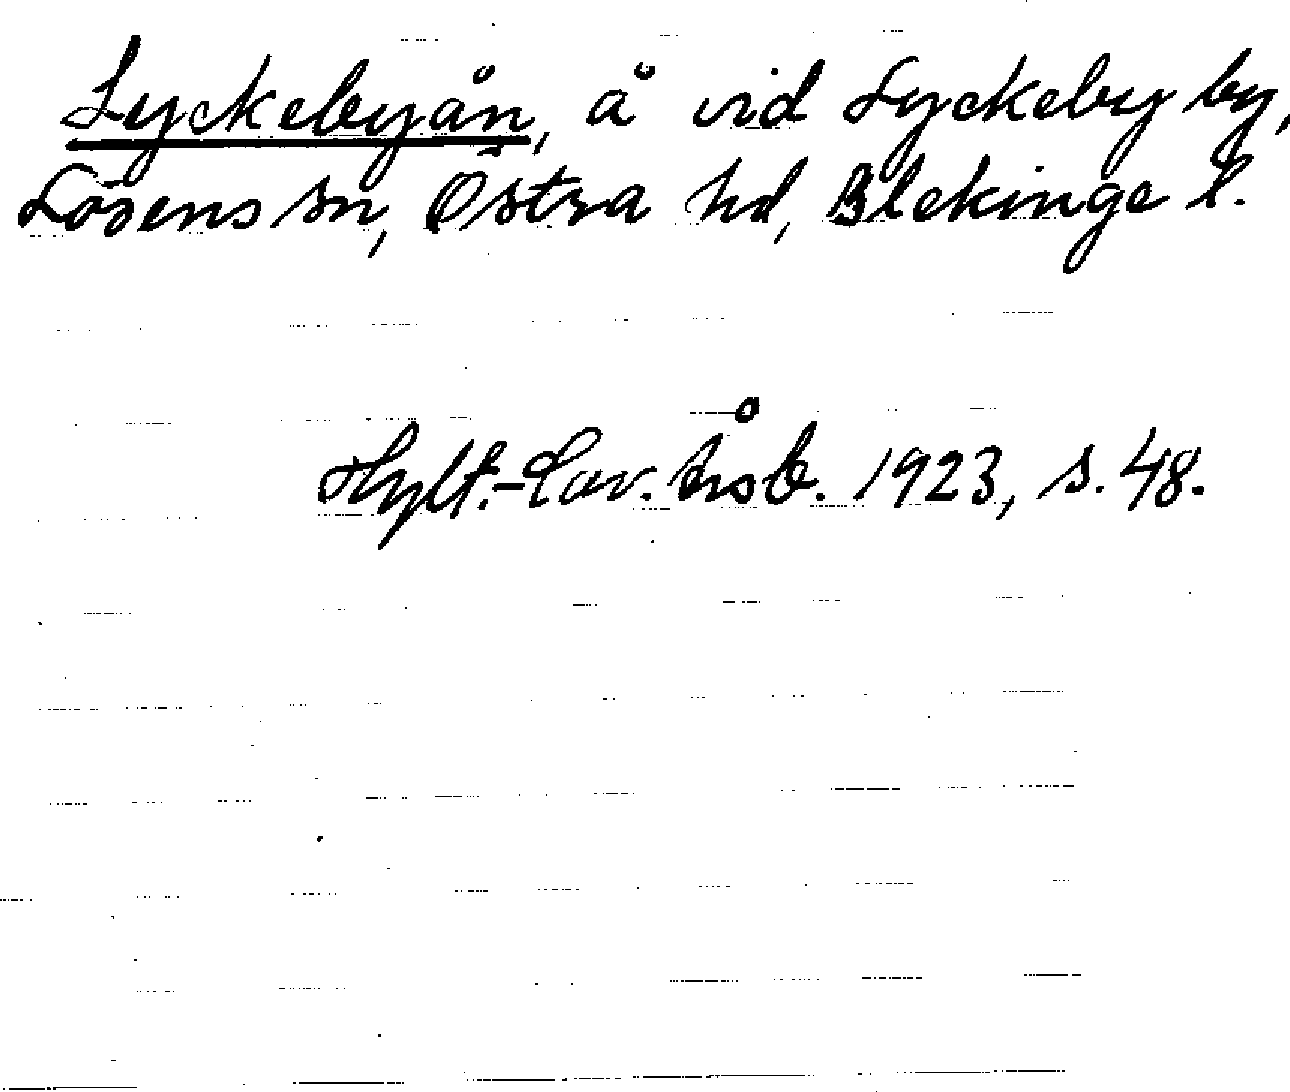 Lyckebyån, å vid Lyckeby by,
Lösens sn, Östra hd, Blekinge l.
Hylt.-Cav. Årsb. 1923, s. 48.